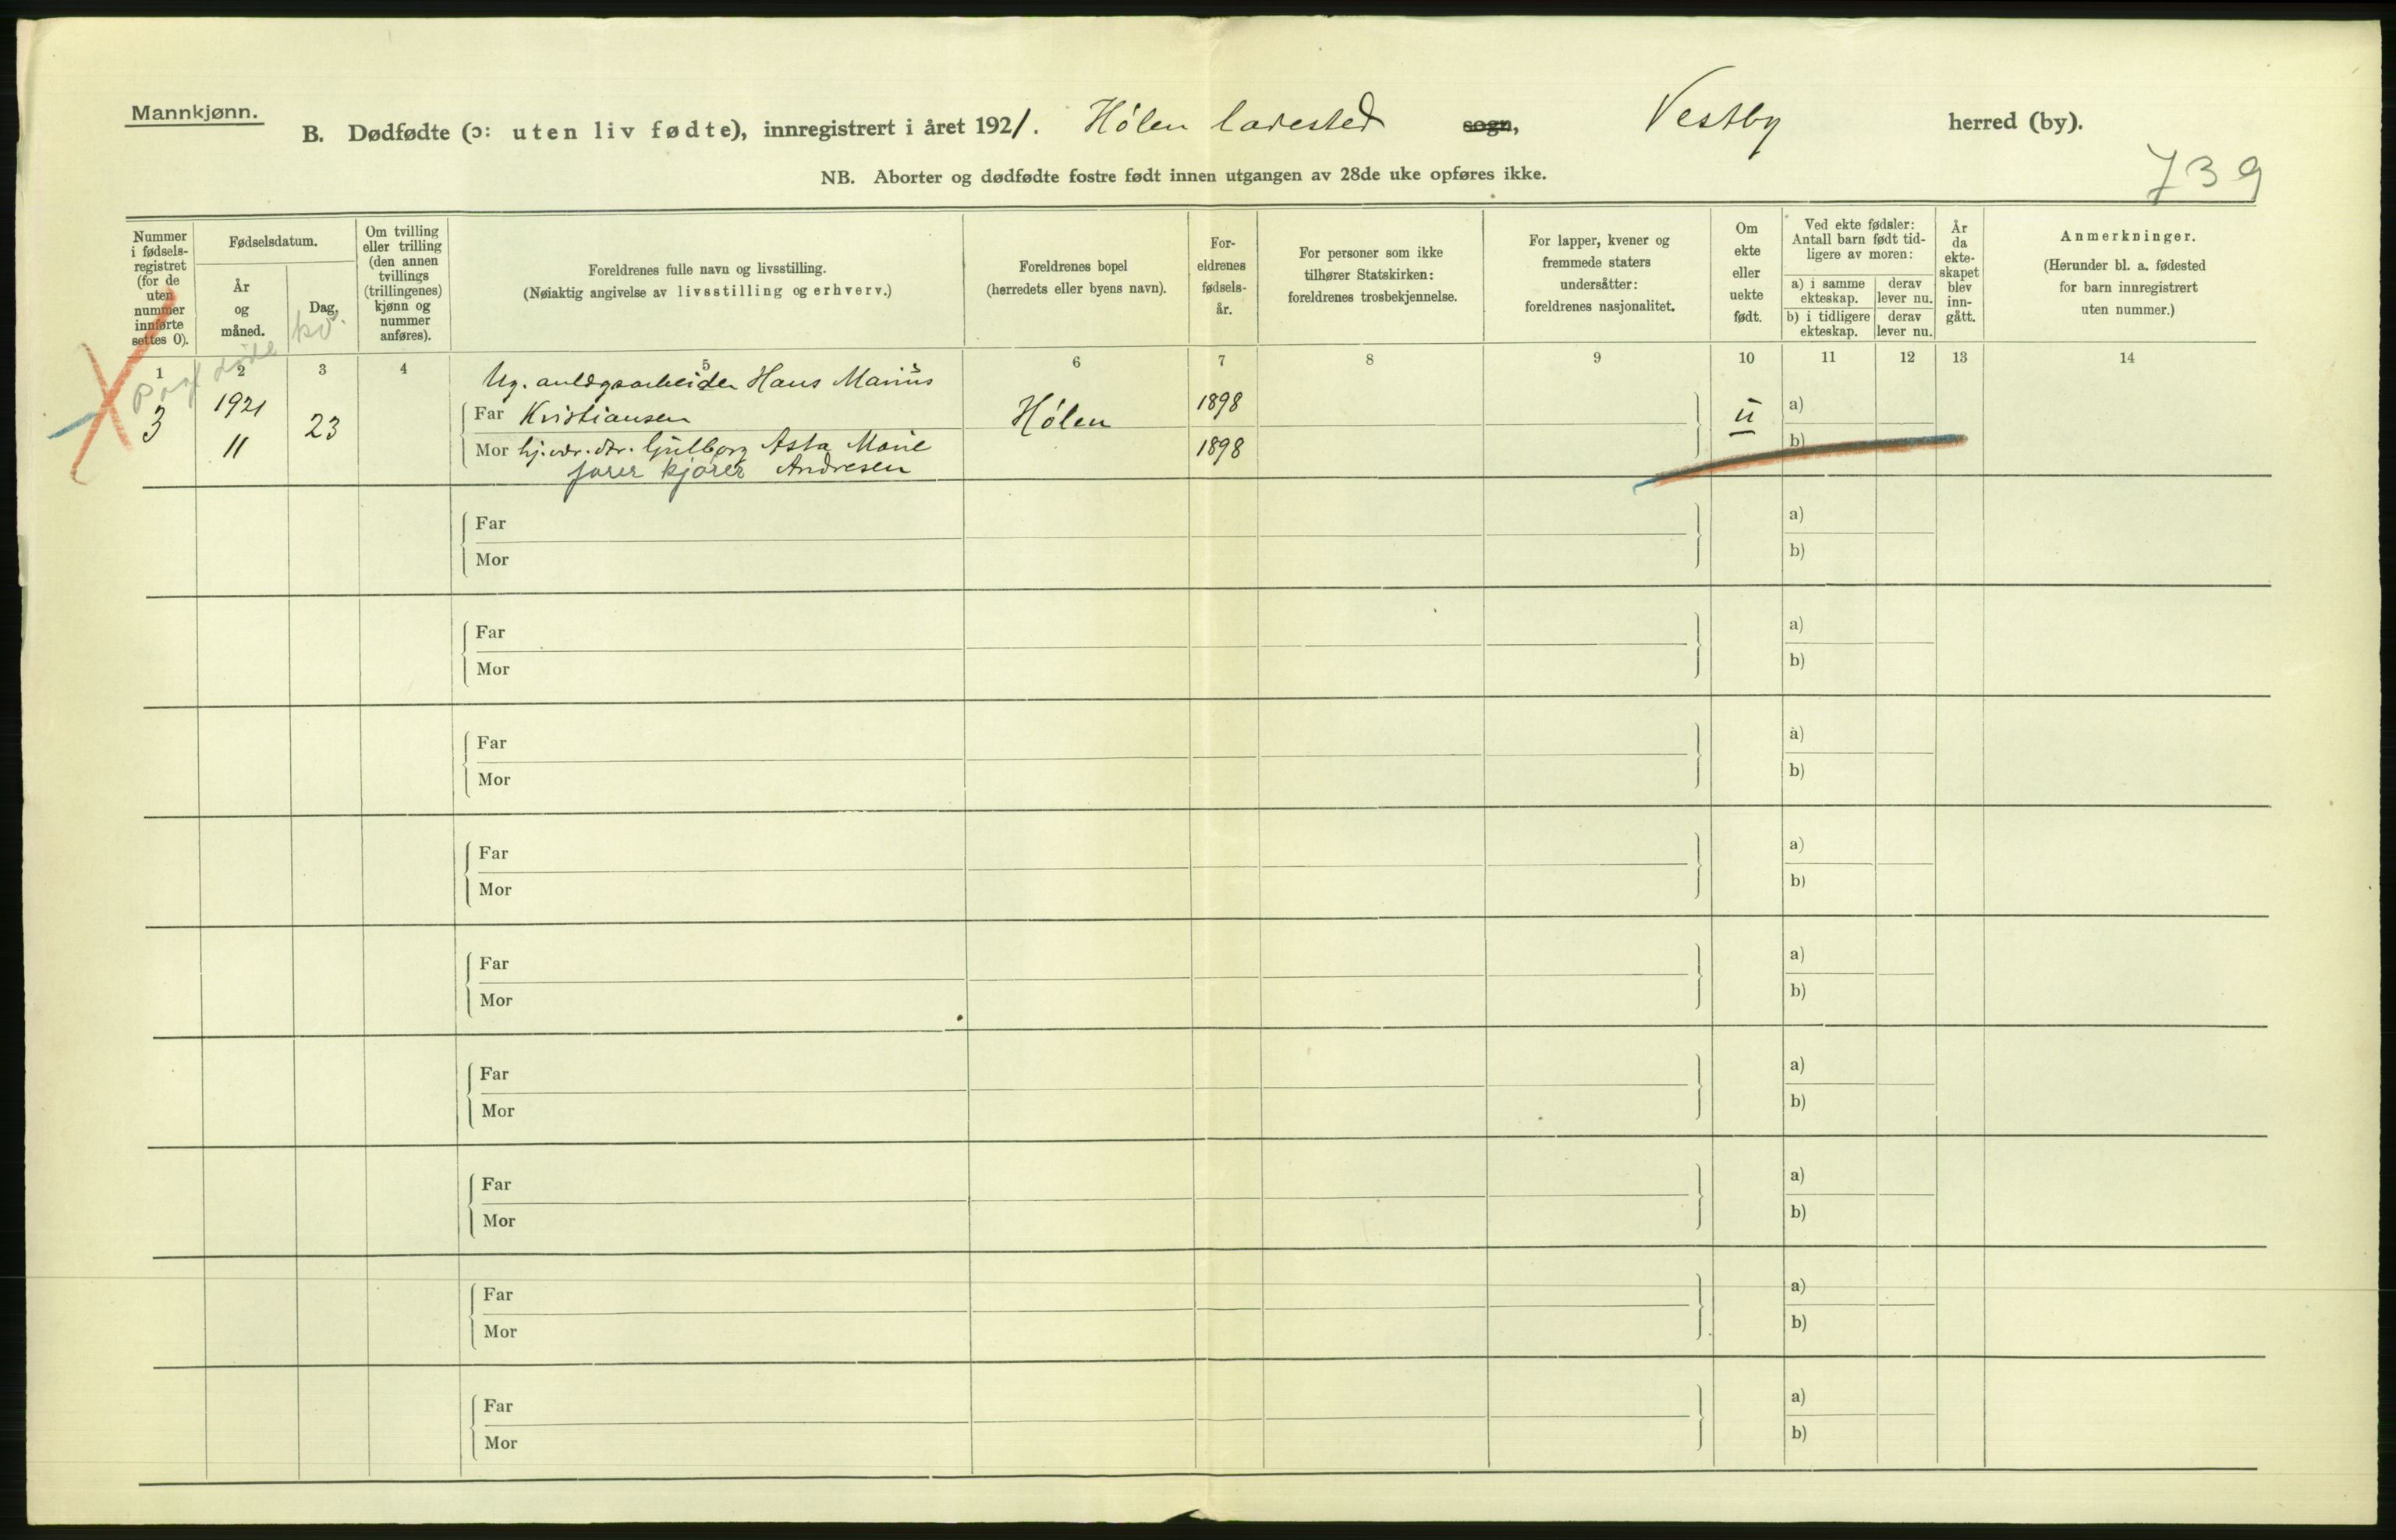 Mannkjønn.
B. Dødfødte (ɔ: uten liv fødte), innregistrert i året 1921. Hølen ladested sogn, Vestby herred (by).
NB. Aborter og dødfødte fostre født innen utgangen av 28de uke opføres ikke.
739
Nummer i fødsels-registret (for de uten nummer innførte settes 0).
Fødselsdatum.
År og måned.
Dag.
kv.
Om tvilling eller trilling (den annen tvillings (trillingenes) kjønn og nummer anføres).
Foreldrenes fulle navn og livsstilling.
(Nøiaktig angivelse av livsstilling og erhverv.)
Foreldrenes bopel
(herredets eller byens navn).
For-eldrenes fødsels-år.
For personer som ikke tilhører Statskirken: foreldrenes trosbekjennelse.
For lapper, kvener og fremmede staters undersåtter: foreldrenes nasjonalitet.
Om ekte eller uekte født.
Ved ekte fødsler: Antall barn født tid-ligere av moren:
a) i samme ekteskap.
derav lever nu.
b) i tidligere ekteskap.
derav lever nu.
År da ekte-skapet blev inn-gått.
Anmerkninger.
(Herunder bl. a. fødested for barn innregistrert uten nummer.)
1 2 3 4 5 6 7 8 9 10 11 12 13 14
Ug. anlægsarbeider Hans Marius
3 1921 23 Far Kristiansen Hølen 1898 u a)
11 Mor hj.vær. dtr. Gulborg Asta Marie 1898 b)
kjører Andresen
Far a)
Mor b)
Far a)
Mor b)
Far a)
Mor b)
Far a)
Mor b)
Far a)
Mor b)
Far a)
Mor b)
Far a)
Mor b)
Far a)
Mor b)
Far a)
Mor b)